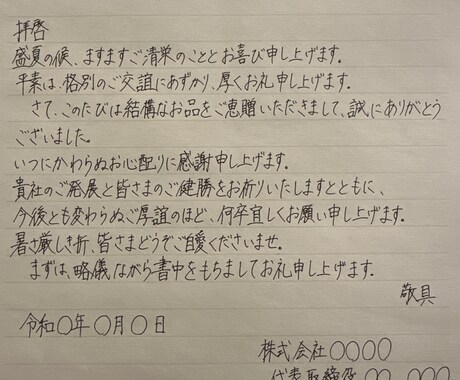 拝啓
盛夏の候、ますますご清栄のこととお喜び申し上げます。
平素は、格別のご交誼にあずかり、厚くお礼申し上げます。
さて、このたびは結構なお品をご恵贈いただきまして、誠にありがとう
ございました。
いつにかわらぬお心配りに感謝申し上げます。
貴社のご発展と皆さまのご健勝をお祈りいたしますとともに、
今後とも変わらぬご厚誼のほど、何卒宜しくお願い申し上げます。
暑さ厳しき折、皆さまどうぞご自愛くださいませ。
まずは、略儀ながら書中をもちましてお礼申し上げます。
敬具
令和〇年〇月〇日
株式会社〇〇〇〇
代表取締役 〇〇 〇〇〇